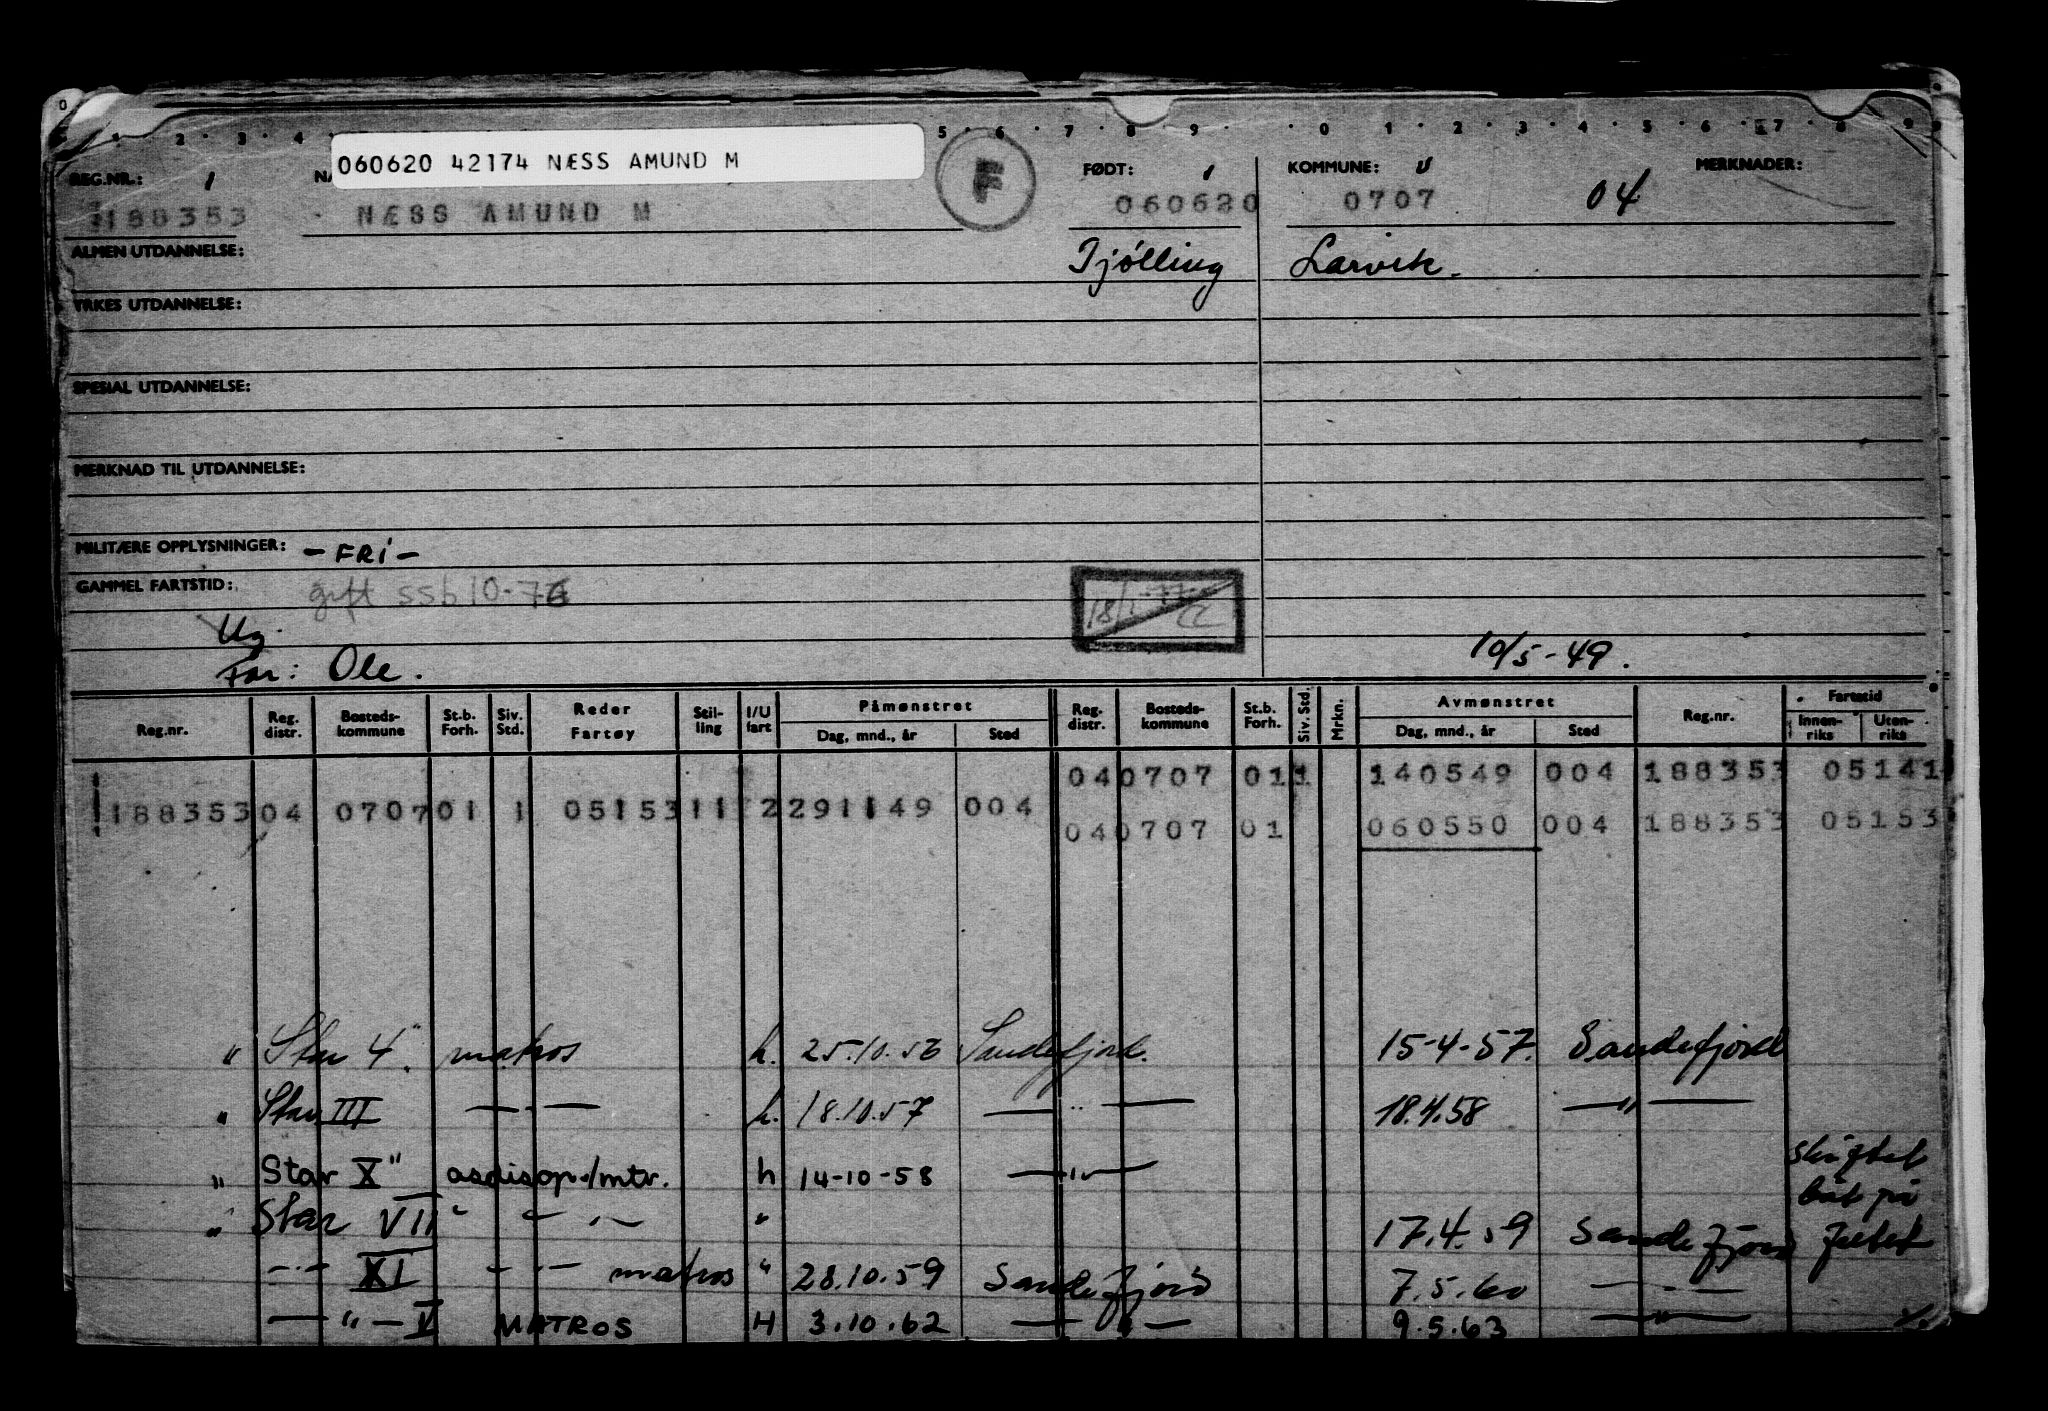 0 1 2 3 4 5 6 7 8 9 0 1 2 3 4 5 6 7 8 9
060620 42174 NÆSS AMUND M
REG.NR.: F FØDT: KOMMUNE: MERKNADER:
188353 NÆSS AMUND M 060620 0707 04
ALMEN UTDANNELSE: Tjølling Larvik.
YRKES UTDANNELSE:
SPESIAL UTDANNELSE:
MERKNAD TIL UTDANNELSE:
MILITÆRE OPPLYSNINGER: - FRi -
GAMMEL FARTSTID: gift ssb 10-76
18/1-77
Ug.
Far: Ole. 10/5-49.
Reg.nr. Reg. distr. Bosteds-kommune St.b. Forh. Siv. Std. Reder Fartøy Stil-ling I/U fart Påmønstret Dag, mnd., år Sted Reg. distr. Bosteds-kommune St.b. Forh. Siv. Std. Mrkn. Avmønstret Dag, mnd., år Sted Reg.nr. Fartstid Innen-riks Uten-riks
040707 011 140549 004 188353 05141
188353 04 0707 01 1 05153 11 2 291149 004
040707 01 060550 004 188353 05153
" Star 4" matros h. 25.10.56 Sandefjord. 15-4-57. Sandefjord
" Star III — " — h. 18.10.57 — " — 18.4.58 — " —
" Star X" asdisop./mtr. h 14-10-58 — " — skiftet
båt på
" Star VII" — " — " 17.4.59 Sandefjord feltet
— " — XI — " — matros " 28.10.59 Sandefjord 7.5.60 — " —
— " — V MATROS H 3.10.62 — " — 9.5.63 — " —